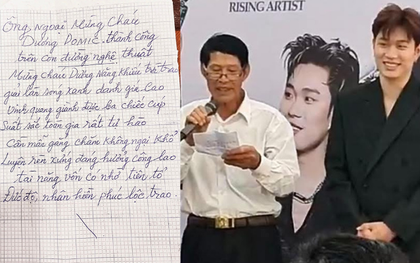 Ông ngoại Mừng Cháu
Dương POMIE thành công
trên con đường nghệ thuật
Mừng Cháu Dương năng khiếu trẻ trao
gai lăn sóng xanh danh giá cao
Vinh quang giành được ba chiếc cúp
Suất sắc toàn gia rất tự hào
Cần mẫn gắng chăm không ngại khổ
Luyện rèn xứng đáng hưởng công lao
tài năng vốn có nhờ tiên tổ
Đức độ, nhân hiền phúc lộc trao.
RISING ARTIST